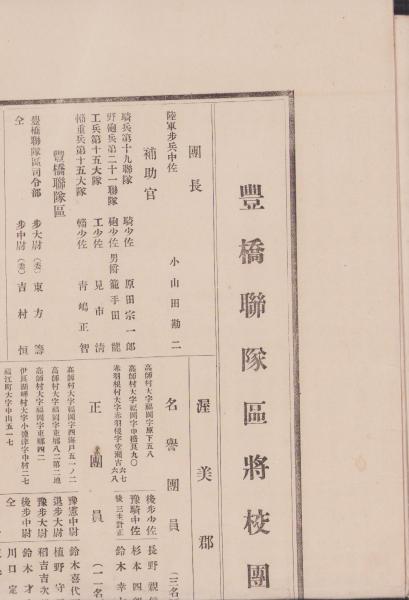 豐橋聯隊區將校團
團長
陸軍步兵中佐 小山田勘二
補助官
騎兵第十九聯隊 騎少佐 原田宗一郎
野砲兵第二十一聯隊 砲少佐 男爵 籠手田龍
工兵第十五大隊 工少佐 見市清
輜重兵第十五大隊 輜少佐 青嶋正智
豐橋聯隊區
豐橋聯隊區司令部 步大尉(委) 東方壽
仝 步中尉(委) 吉村恒
渥美郡
名譽團員(三名
高師村大字福岡字原下五八 後步少佐 長野親
高師村大字福岡字中橋良九〇 豫騎中佐 杉本四郎
赤羽根村大字赤羽根字堂瀬古六七六八 後三主計正 鈴木幸
正團員(一一名
高師村大字福岡字西海戸五一ノ二 豫憲中尉 鈴木喜代
高師村大字福岡字東郷八二第二地 退步大尉 植野守
高師村大字福岡字東郷四二 豫步大尉 稻吉吉次
伊良湖岬村大字小鹽津字中村二七 後步中尉 鈴木才
福江町大字中山五一七 仝 川口定